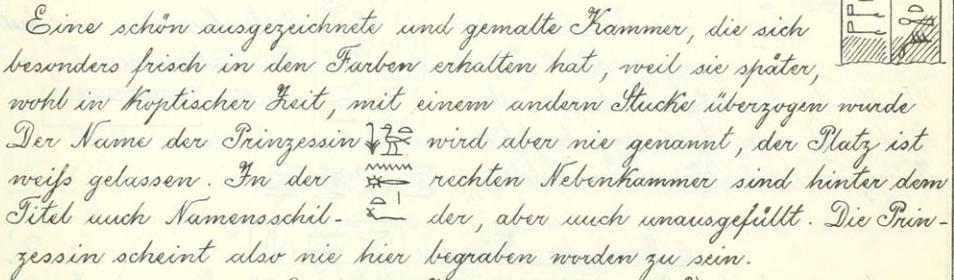 Eine schön ausgezeichnete und gemalte Kammer, die sich
besonders frisch in den Farben erhalten hat, weil sie später,
wohl in koptischer Zeit, mit einem andern Stucke überzogen wurde
Der Name der Prinzessin wird aber nie genannt, der Platz ist
weiß gelassen. In der rechten Nebenkammer sind hinter dem
Titel auch Namensschil- der, aber auch unausgefüllt. Die Prin-
zessin scheint also nie hier begraben worden zu sein.